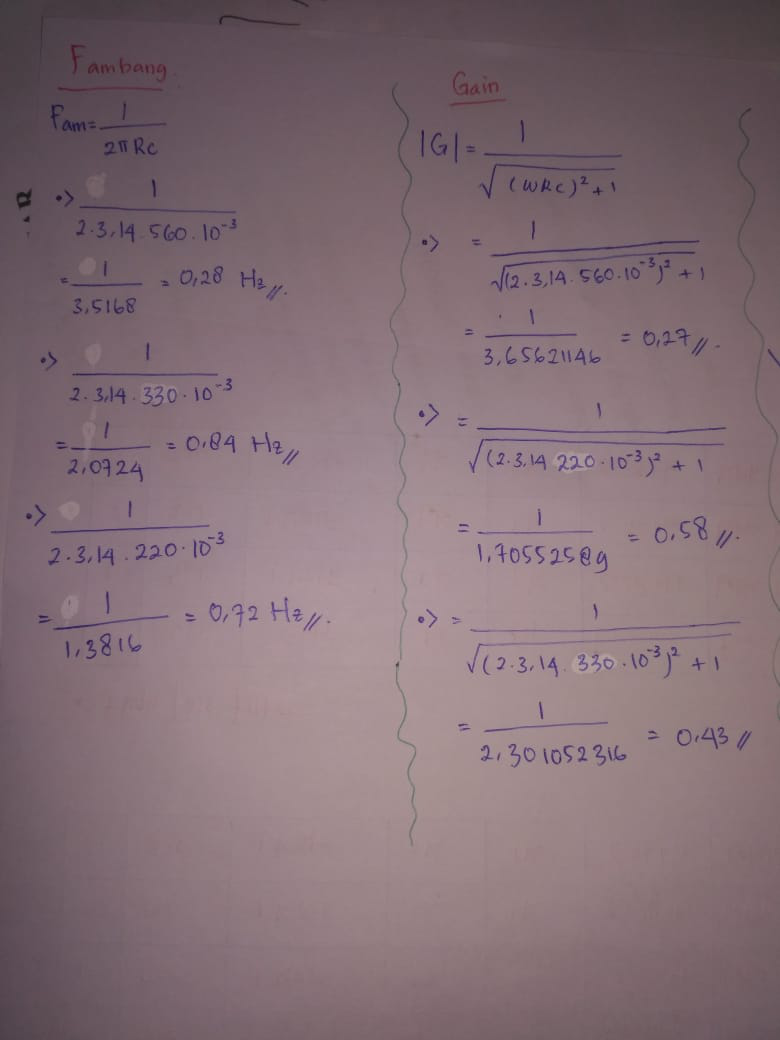 Fambang
Fam = 1 / 2π RC
•> 1 / 2.3,14.560.10⁻³
= 1 / 3,5168 = 0,28 Hz //.
•> 1 / 2.3,14.330.10⁻³
= 1 / 2,0724 = 0,84 Hz //
•> 1 / 2.3,14.220.10⁻³
= 1 / 1,3816 = 0,72 Hz //.
Gain
|G| = 1 / √(WRC)² + 1
•> = 1 / √(2.3,14.560.10⁻³)² + 1
= 1 / 3,65621146 = 0,27 //.
•> = 1 / √(2.3,14 220.10⁻³)² + 1
= 1 / 1,70552589 = 0,58 //.
•> = 1 / √(2.3,14.330.10⁻³)² + 1
= 1 / 2,301052316 = 0,43 //